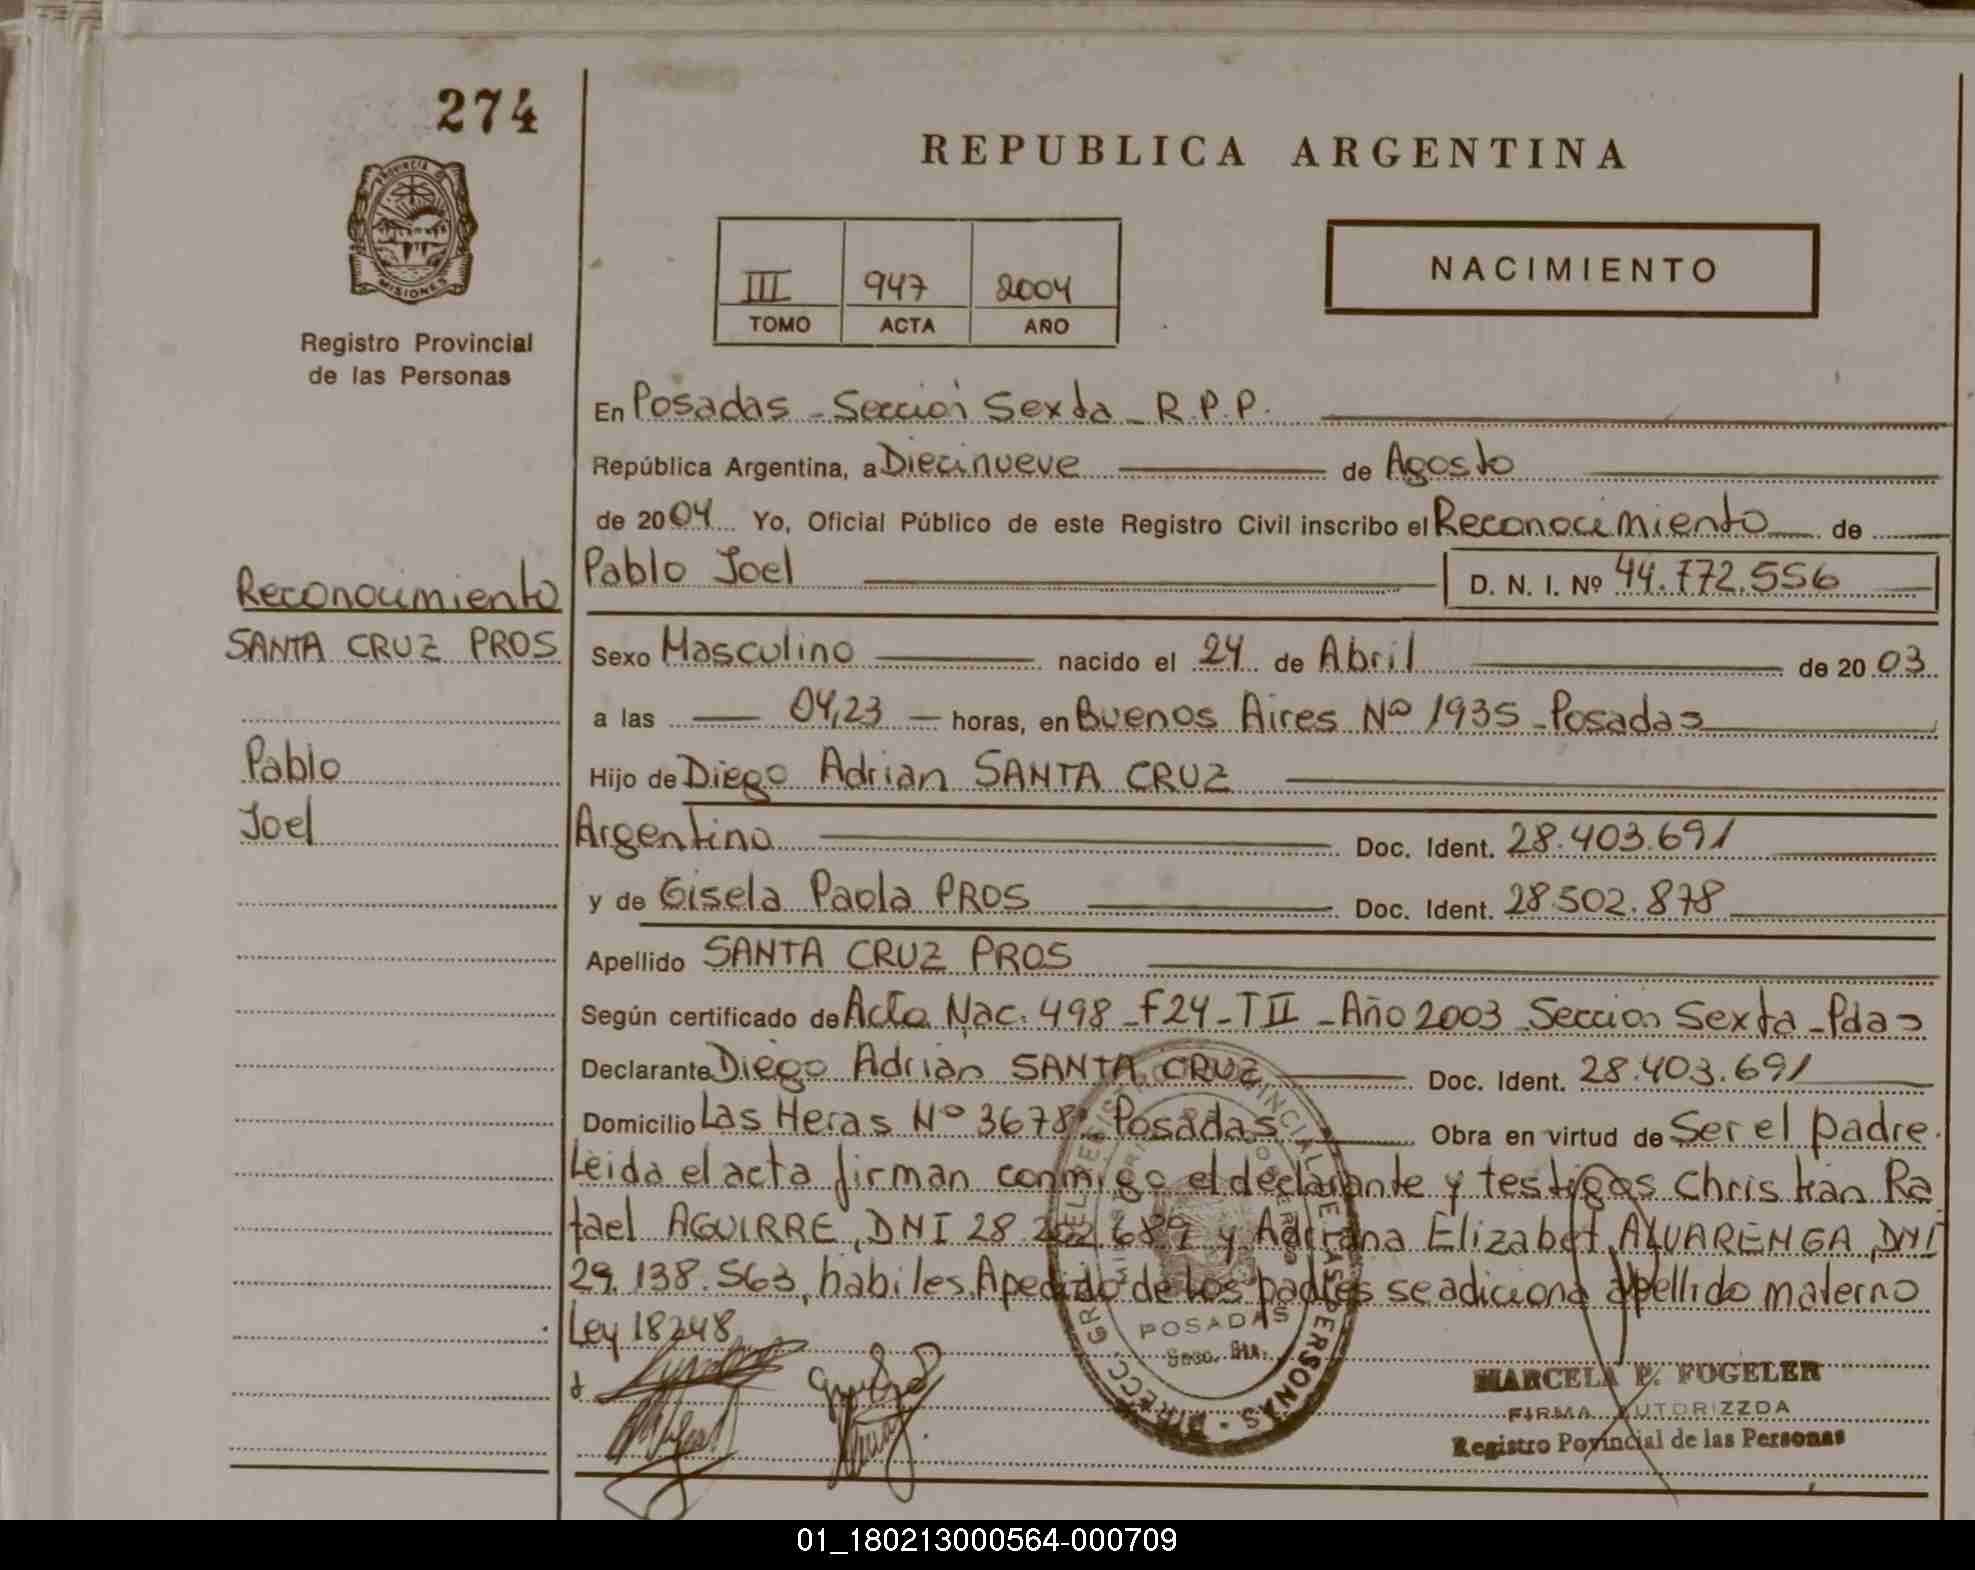 274
REPUBLICA ARGENTINA
PROVINCIA DE
MISIONES
Registro Provincial
de las Personas
III 947 2004
TOMO ACTA AÑO
NACIMIENTO
En Posadas - Sección Sexta - R.P.P.
República Argentina, a Diecinueve de Agosto
de 2004 Yo, Oficial Público de este Registro Civil inscribo el Reconocimiento de
Pablo Joel D. N. I. Nº 44.772.556
Reconocimiento
SANTA CRUZ PROS
Pablo
Joel
Sexo Masculino nacido el 24 de Abril de 2003
a las 04,23 horas, en Buenos Aires Nº 1935 - Posadas
Hijo de Diego Adrian SANTA CRUZ
Argentino Doc. Ident. 28.403.691
y de Gisela Paola PROS Doc. Ident. 28.502.878
Apellido SANTA CRUZ PROS
Según certificado de Acta Nac. 498 - F24 - TII - Año 2003 Sección Sexta - Pdas
Declarante Diego Adrian SANTA CRUZ Doc. Ident. 28.403.691
Domicilio Las Heras Nº 3678 Posadas Obra en virtud de Ser el padre.
Leida el acta firman conmigo el declarante y testigos Christian Ra
fael AGUIRRE, DNI 28. y Adriana Elizabet ALVARENGA, DNI
29.138.563, habiles. Apedido de los padres se adiciona apellido materno
Ley 18248
POSADAS
Secc. 6ta.
MARCELA P. FOGELER
FIRMA AUTORIZZDA
Registro Povincial de las Personas
01_180213000564-000709